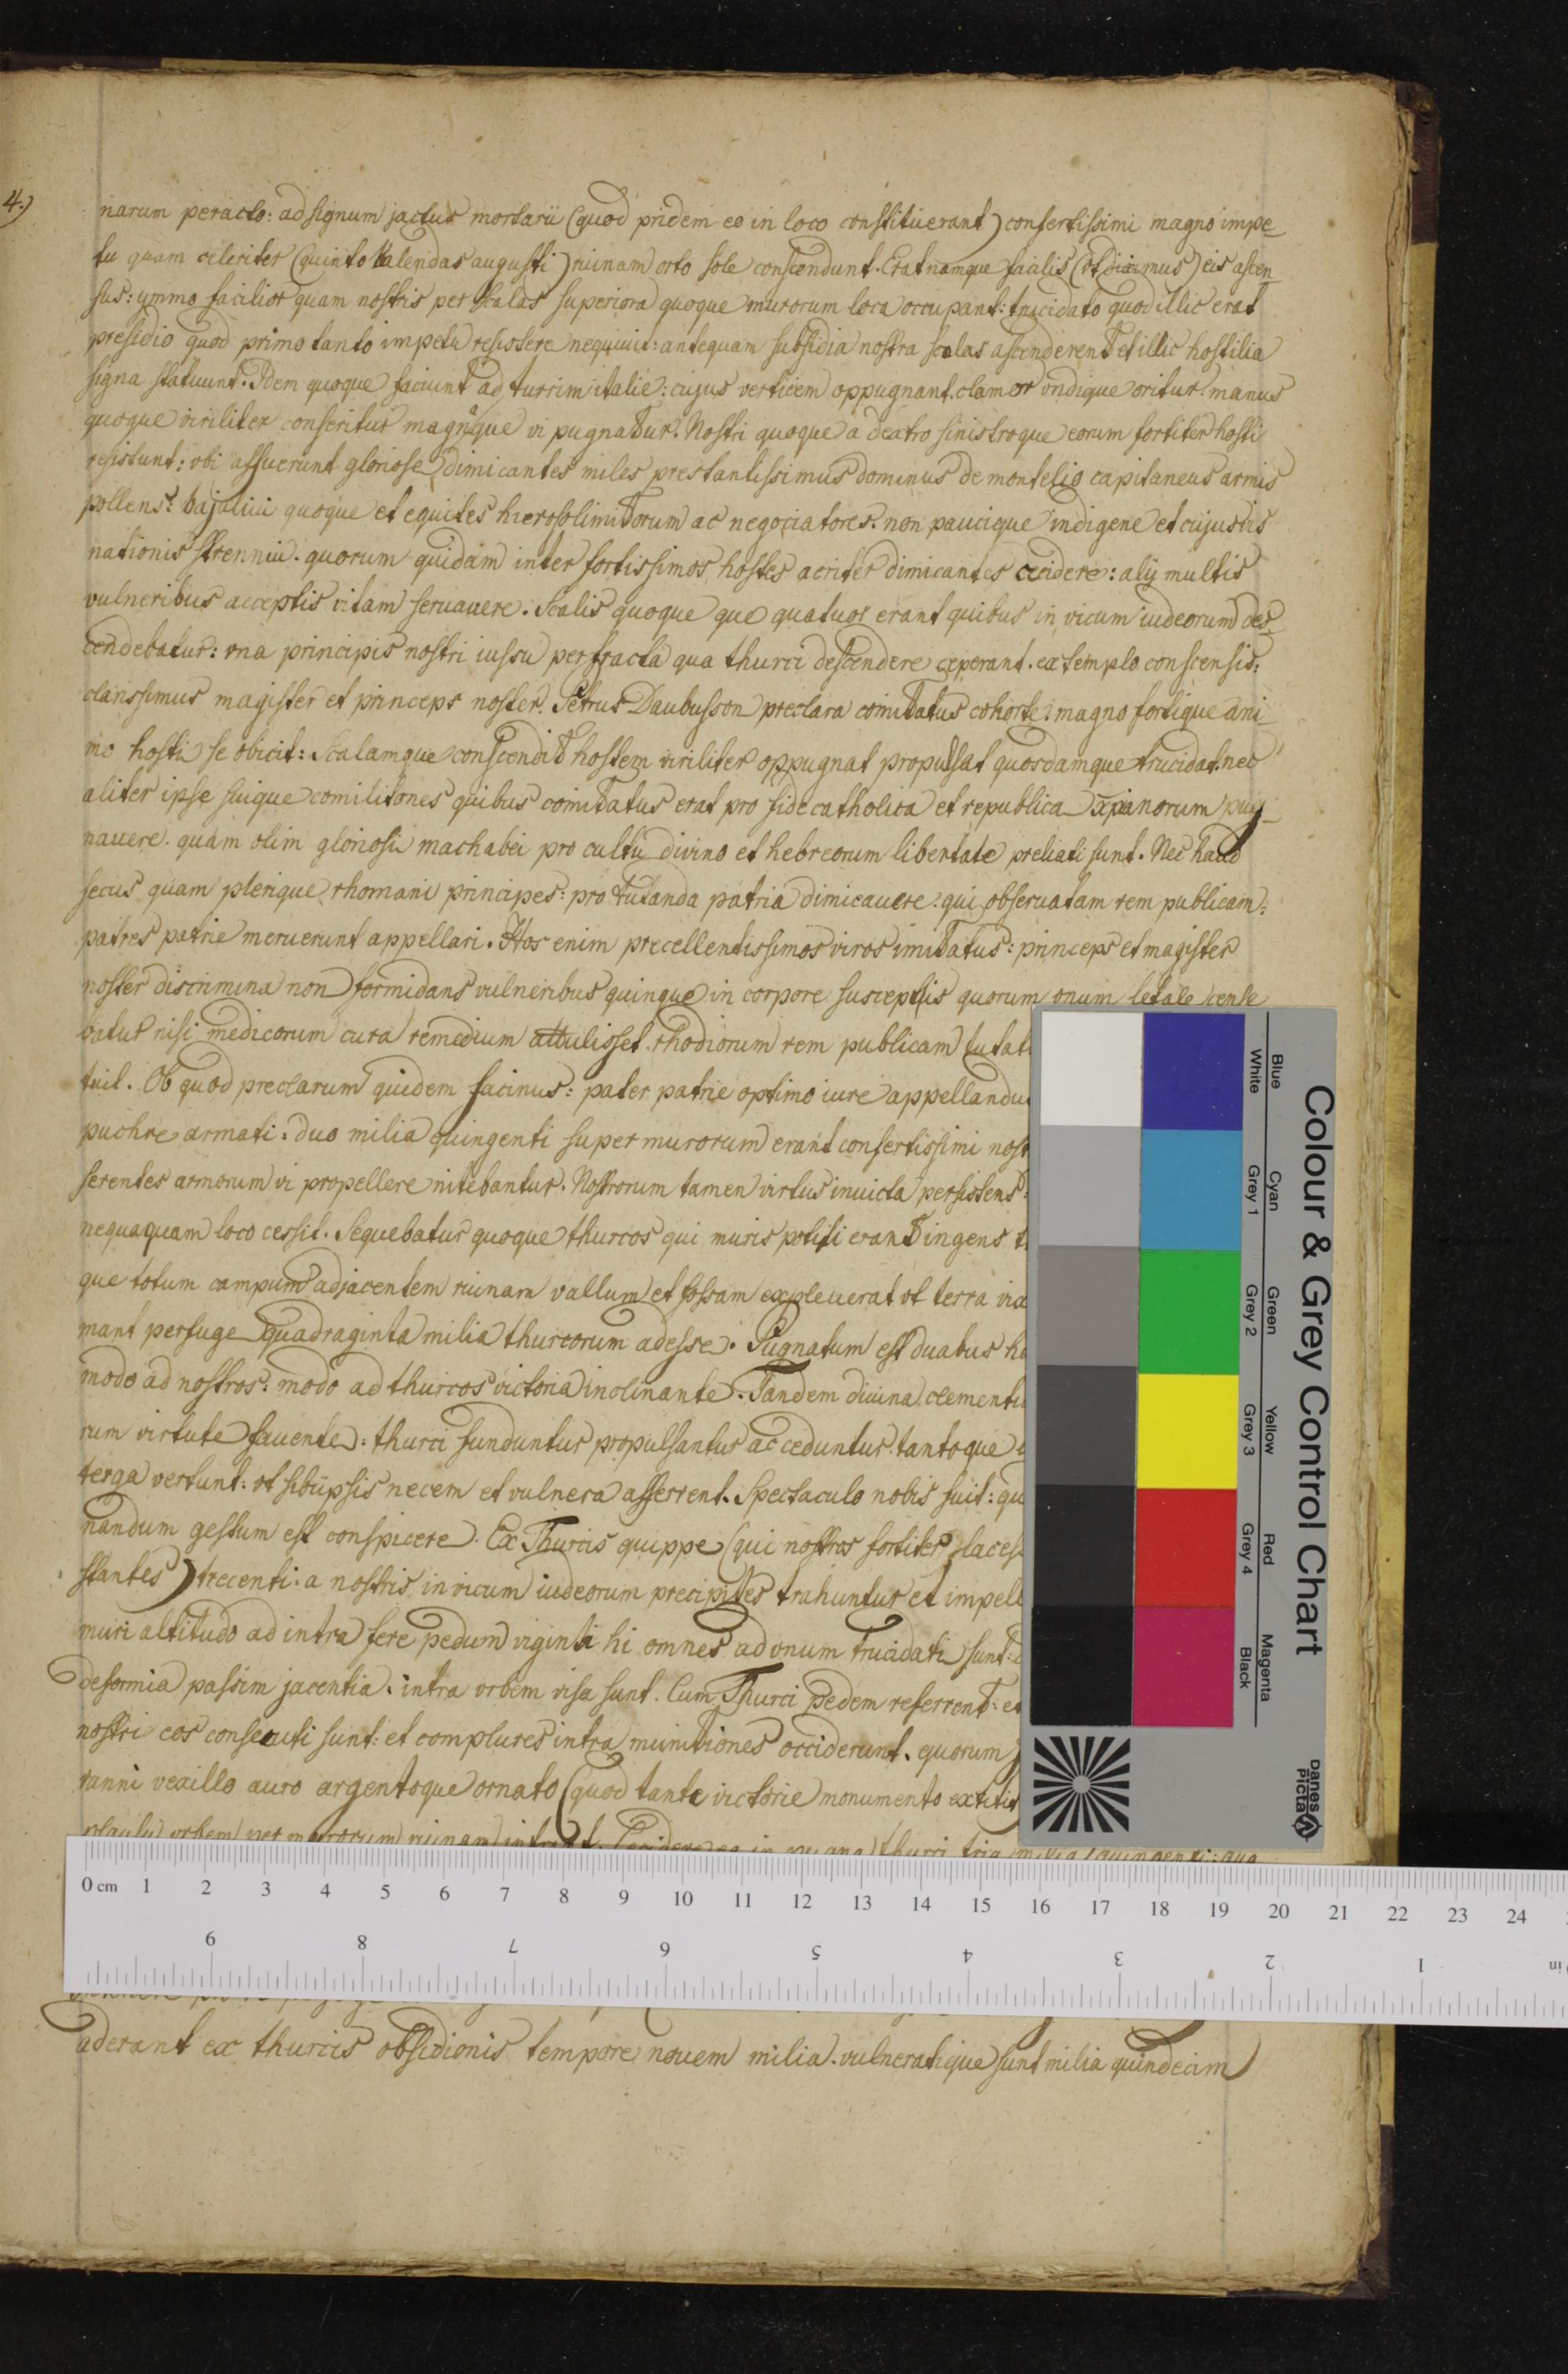 4.)
narum peracto: ad signum jactus mortarii (quod pridem eo in loco constituerant) confertissimi magno impe_
tu quam celeriter (quinto Kalendas augusti) ruinam orto sole conscendunt. Erat namque facilis (vt diximus) eis ascen_
sus: ymmo facilior quam nostris per scalas superiora quoque murorum loca occupant: trucidato quod illic erat
presidio quod primo tanto impetu resistere nequiuit: antequam subsidia nostra scalas ascenderent et illic hostilia
signa statuunt. Idem quoque faciunt ad turrim italie: cujus verticem oppugnant. clamor vndique oritur. manus
quoque viriliter conseritur magnaque vi pugnatur. Nostri quoque a dextro sinistroque eorum fortiter hosti
resistunt: vbi affuerunt gloriose dimicantes miles prestantissimus dominus de montelio capitaneus armis
pollens: bajuliui quoque et equites hierosolimitorum ac negociatores. non paucique indigene et cujusuis
nationis strennui. quorum quidam inter fortissimos hostes acriter dimicantes cecidere: alij multis
vulneribus acceptis vitam seruauere. Scalis quoque que quatuor erant quibus in vicum iudeorum des_
cendebatur: vna principis nostri iussu perfracta qua thurci descendere ceperant. extemplo conscensis:
clarissimus magister et princeps noster. Petrus Daubusson preclara comitatus cohorte: magno fortique ani_
mo hosti se obicit: Scalamque conscendit hostem viriliter oppugnat propulsat quosdamque trucidat. nec
aliter ipse suique comilitones quibus comitatus erat pro fide catholica et republica xpianorum pug_
nauere. quam olim gloriosi machabei pro cultu divino et hebreorum libertate preliati sunt. Nec haud
secus quam plerique rhomani principes: pro tutanda patria dimicauere: qui obseruatam rem publicam:
patres patrie meruerunt appellari. Hos enim precellentissimos viros imitatus: princeps et magister
noster discrimina non formidans vulneribus quinque in corpore susceptis quorum vnum letale cense
batur nisi medicorum cura remedium attulisset. rhodiorum rem publicam tutat
tuit. Ob quod preclarum quidem facinus: pater patrie optimo iure appellandu
puchre armati: duo milia quingenti super murorum erant confertissimi nost
serentes armorum vi propellere nitebantur. Nostrorum tamen virtus inuicta persistens:
nequaquam loco cessit. Sequebatur quoque thurcos qui muris potiti erant ingens t
que totum campum adjacentem ruinam vallum et fossam expleuerat vt terra vix
mant perfuge quadraginta milia thurcorum adesse. Pugnatum est duabus ho
modo ad nostros: modo ad thurcos victoria inclinante. Tandem diuina clementi
rum virtute fauente: thurci funduntur propulsantur ac ceduntur. tantoque
terga vertunt: vt sibiipsis necem et vulnera afferrent. Spectaculo nobis fuit: qu
nandum gestum est conspicere. Ex Thurcis quippe (qui nostros fortiter laces
stantes) trecenti: a nostris in vicum iudeorum precipites trahuntur et impell
muri altitudo ad intra fere pedum viginti hi omnes ad vnum trucidati sunt:
deformia passim jacentia. intra vrbem visa sunt. Cum Thurci pedem referrent: ex
nostri eos consecuti sunt: et complures intra munitiones occiderunt. quorum
ranni vexillo auro argentoque ornato (quod tante victorie monumento extitit
plausu vrbem per murorum ruinam intrant. Cecidere ea in pugna thurci tria milia quingenti: qua
aderant ex thurcis obsidionis tempore nouem milia. vulneratique sunt milia quindecim
Colour & Grey Control Chart
Blue Cyan Green Yellow Red Magenta
White Grey 1 Grey 2 Grey 3 Grey 4 Black
Danes Picta
0 cm 1 2 3 4 5 6 7 8 9 10 11 12 13 14 15 16 17 18 19 20 21 22 23 24
in 1 2 3 4 5 6 7 8 9